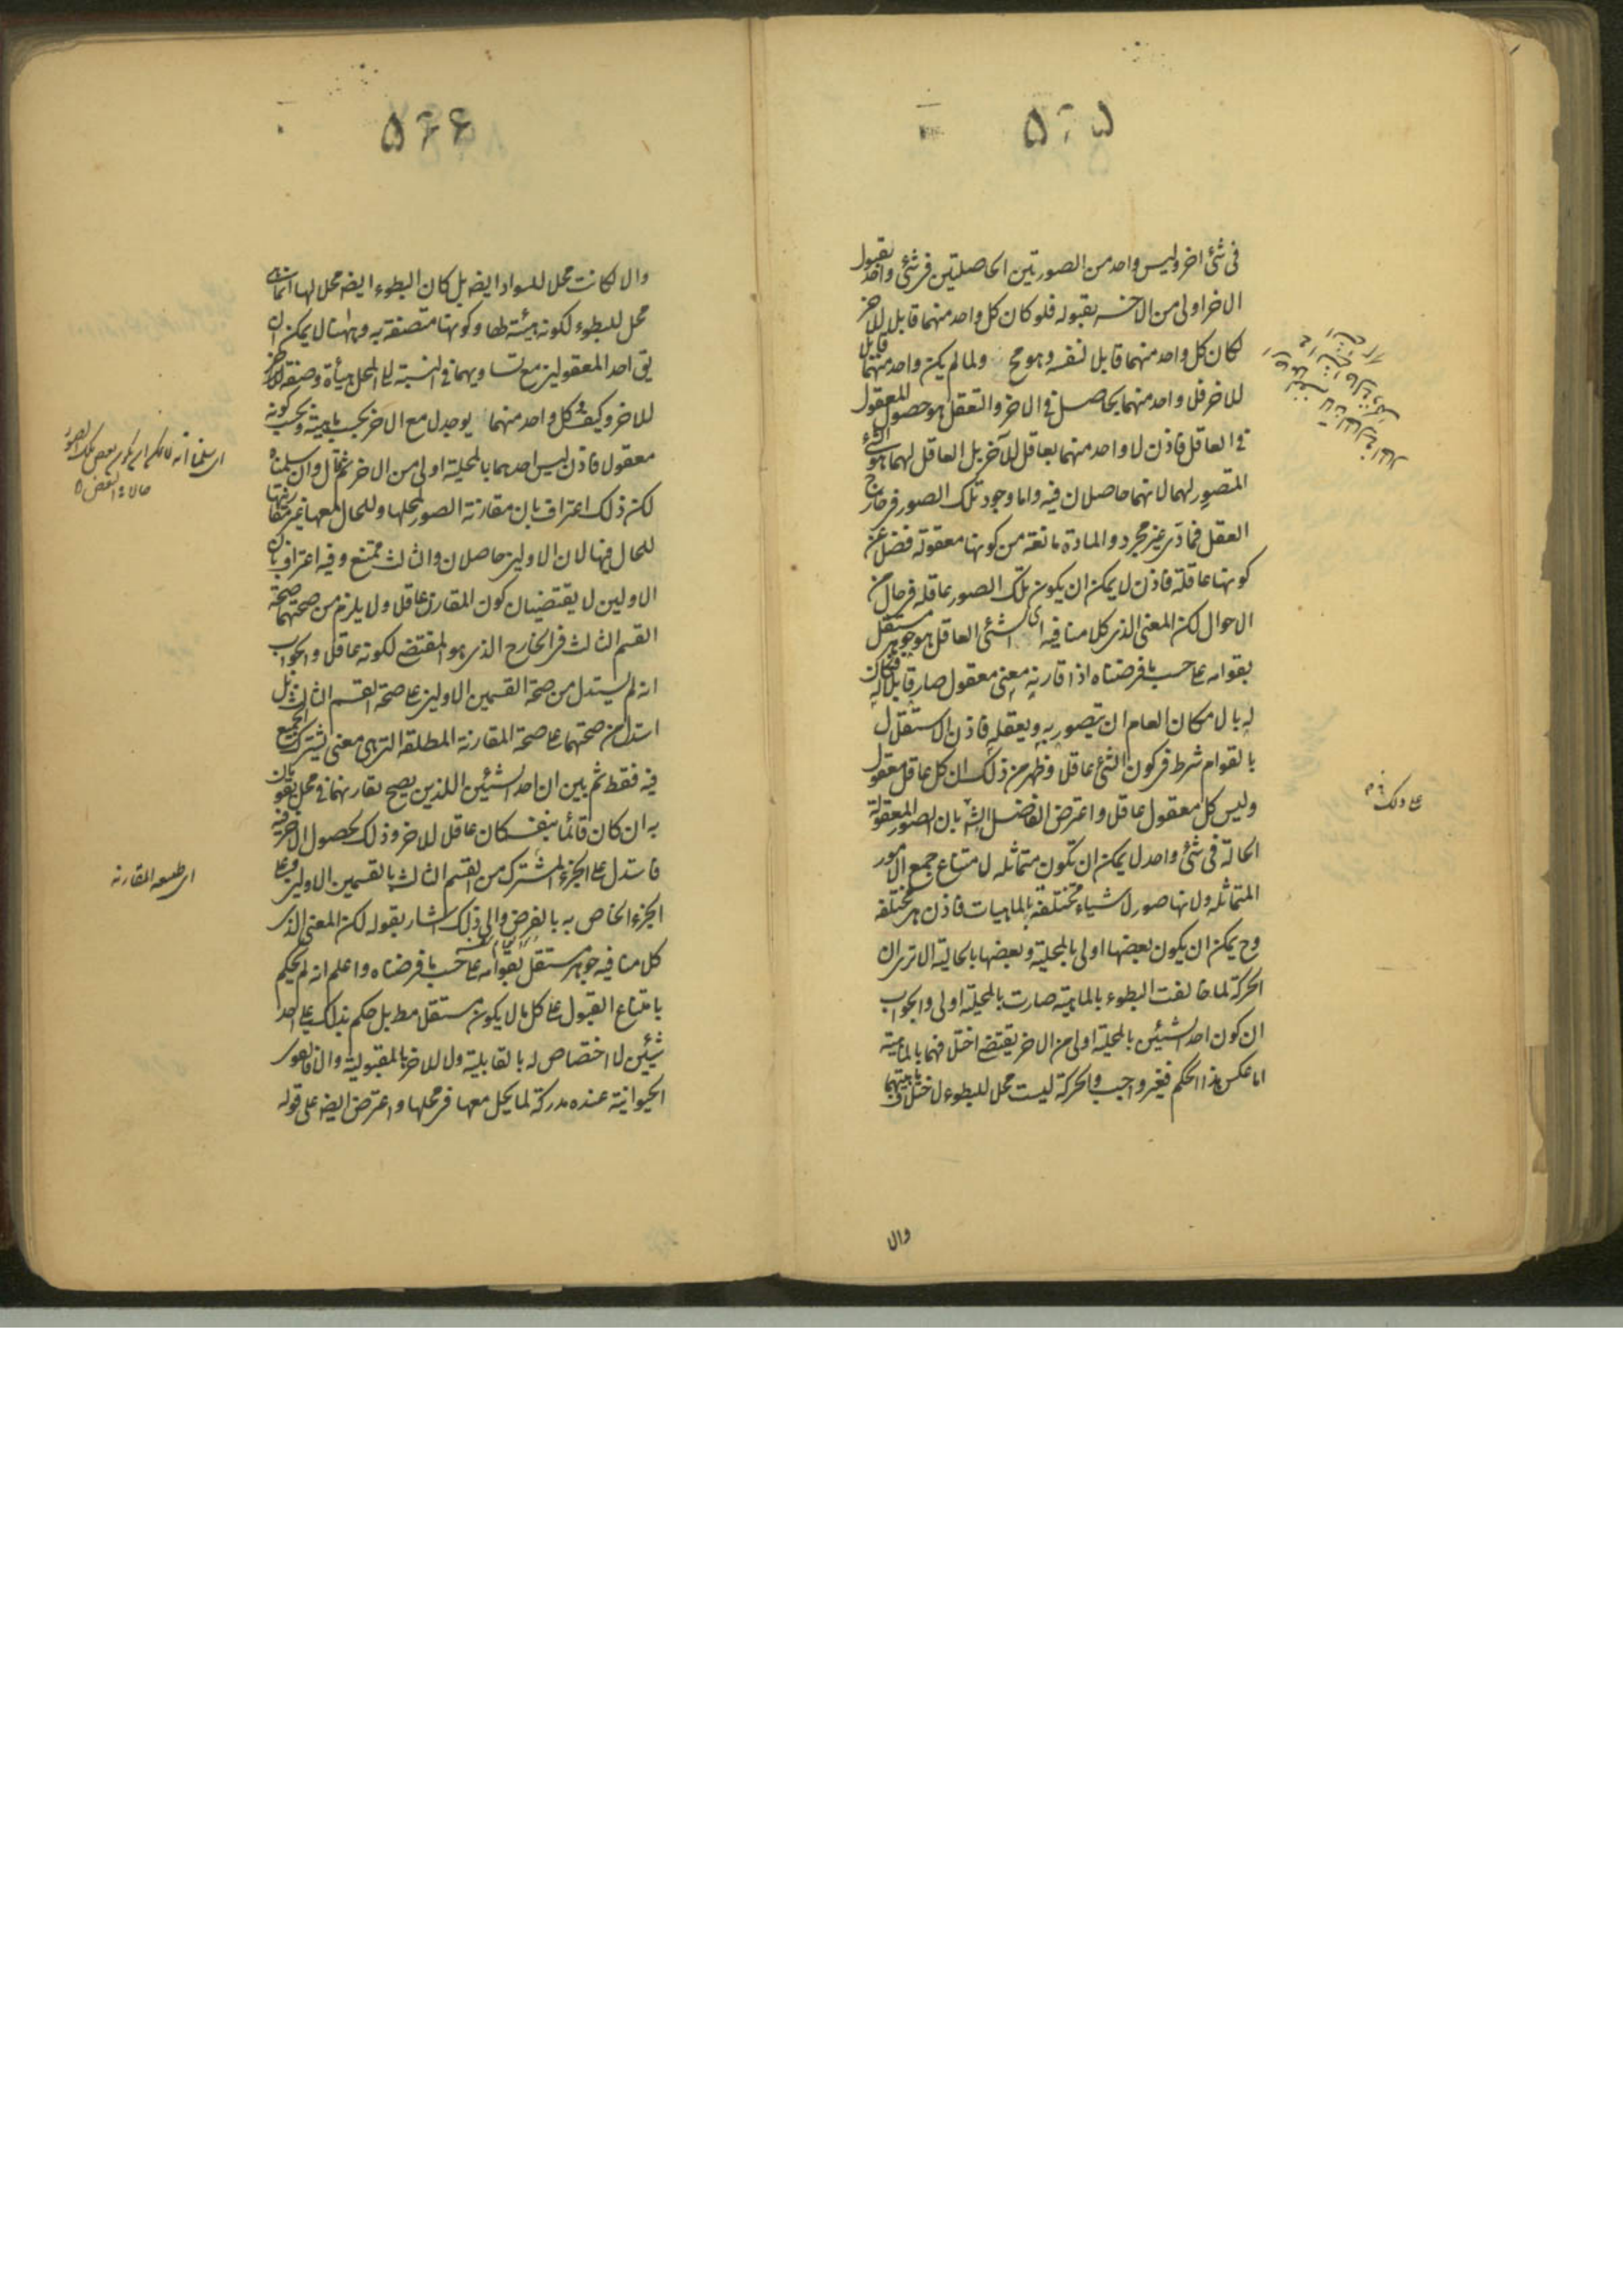 ۵۲۵
فی شئ اخر ولیس واحد من الصورتین الحاصلتین فی شئ واحد بقبول
الاخر اولی من الاخر بقبوله فلو کان کل واحد منهما قابلا للاخر
لکان کل واحد منهما قابلا لنفسه وهو مح ولما لم یکن واحد منهما قابلا
للاخر فلا واحد منهما بحاصل فی الاخر والتعقل هو حصول المعقول
فی العاقل فاذن لا واحد منهما بعاقل للآخر بل العاقل لهما هو الشئ
المتصور لهما لانهما حاصلان فیه واما وجود تلک الصور فی خارج
العقل فمادی غیر مجرد والمادة مانعة من کونها معقولة فضلا عن
کونها عاقلة فاذن لا یمکن ان یکون تلک الصور عاقلة فی حال من
الاحوال لکن المعنی الذی کلامنا فیه ای الشئ العاقل هو جوهر مستقل
بقوامه علی حسب ما فرضناه اذا قارنه معنی معقول صار قابلا له فکان
له بالامکان العام ان یتصور به ویعقله فاذن الاستقلال
بالقوام شرط فی کون الشئ عاقلا وظهر من ذلک ان کل عاقل معقول
ولیس کل معقول عاقلا واعترض الفاضل الشارح بان الصور المعقولة
الحالة فی شئ واحد لا یمکن ان تکون متماثله لامتناع جمع الامور
المتماثله ولانها صور لاشیاء مختلفة بالماهیات فاذن هی مختلفه
وح یمکن ان یکون بعضها اولی بالمحلیة وبعضها بالحالیة الا تری ان
الحرکة لما خالفت البطوء بالماهیة صارت بالمحلیة اولی والجواب
ان کون احد الشیئین بالمحلیة اولی من الاخر یقتضی اختلافهما بالماهیة
اما عکس هذا الحکم فغیر واجب والحرکة لیست محلا للبطوء لاختلاف ماهیتهما
والا
علی ذلک
۵۲۶
والا لکانت محلا للسواد ایضه بل کان البطوء ایضه محلا لها انما هی
محل للبطوء لکونه هیئة لها وکونها متصفة به وههنا لا یمکن ان
یق احد المعقولین مع تساویهما فی النسبة الی المحل هیأة وصفة للاخر
للاخر وکیف کل واحد منهما یوجد لا مع الاخر بحسب ماهیته وبحسب کونه
معقولا فاذن لیس احدهما بالمحلیة اولی من الاخر ثم قال وان سلمناه
لکن ذلک اعتراف بان مقارنة الصور لمحلها وللحال معها غیر مقارنتها
للحال فیها لان الاولین حاصلان والثالث ممتنع وفیه اعتراف بان
الاولین لا یقتضیان کون المقارن عاقلا ولا یلزم من صحتهما صحة
القسم الثالث فی الخارج الذی هو المقتضی لکونه عاقلا والجواب
انه لم یستدل من صحة القسمین الاولین علی صحة القسم الثالث بل
استدل من صحتهما علی صحة المقارنة المطلقة التی هی معنی یشترک الجمیع
فیه فقط ثم بین ان احد الشیئین اللذین یصح تقارنهما فی محل یقومان
به ان کان قائما بنفسه کان عاقلا للاخر وذلک لحصول الاخر فیه
فاستدل علی الجزء المشترک من القسم الثالث بالقسمین الاولین وعلی
الجزء الخاص به بالفرض والی ذلک اشار بقوله لکن المعنی الذی
کلامنا فیه جوهر مستقل بقوامه علی حسب ما فرضناه واعلم انه لم یحکم
بامتناع القبول علی کل ما لا یکون مستقلا مط بل حکم بذلک علی احد
شیئین لا اختصاص له بالقابلیة ولا للاخر بالمقبولیة والا فالقوی
الحیوانیة عنده مدرکة لما یحل معها فی محلها واعترض ایضه علی قوله
ای طبیعه المقارنه